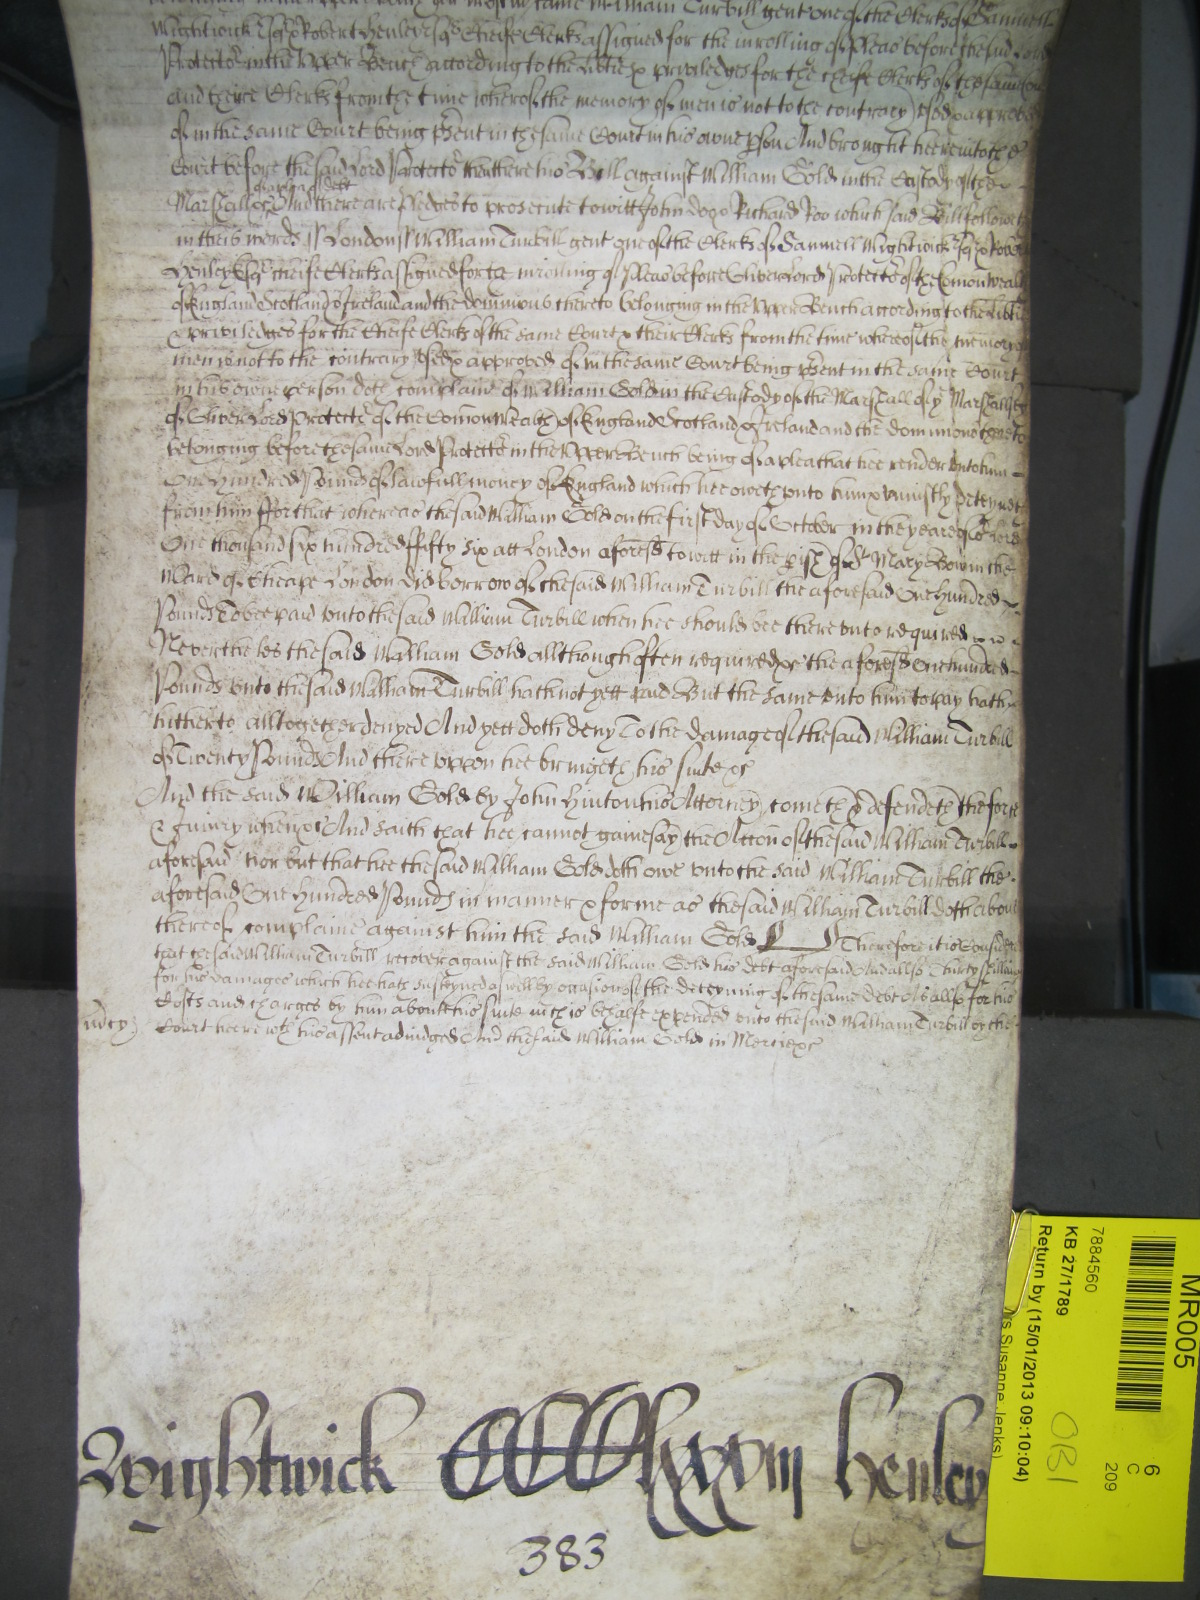 same William Turbill gent one of the Clerks of Samuell
Wightwick Esqr & Robert Henley Esqr Cheife Clerks assigned for the inrolling of Pleas before the said Lord
Protector in the Upper Bench according to the Libties & priviledges for the cheife Clerks of the same Court
and theire Clerks from the time whereof the memory of men is not to the contrary used & approved
of in the same Court being psent in the same Court in his owne pson And brought heere into the
Court before the said Lord Protector then there his Bill against William Gold in the Custody of the
Marshall &c of a plea of debt And there are Pledges to prosecute to witt John Doo & Richard Roo which said Bill followeth
in theis words ss London ss William Turbill gent one of the Clerks of Samuell Wightwick Esqr & Robert
Henley Esqr cheife Clerks assigned for the inrolling of Pleas before Oliver Lord Protector of the Comonwealth
of England Scotland & Ireland and the dominions thereto belonging in the Upper Bench according to the Libties
& priviledges for the Cheife Clerks of the same Court & their Clerks from the time whereof the memory of
men is not to the contrary used & approved of in the same Court being psent in the same Court
in his owne person doth complaine of William Gold in the Custody of the Marshall of ye Marshallsey
of Oliver Lord Protector of the Comon Wealth of England Scotland & Ireland and the dominions thereto
belonging before the same Lord Protector in the Upper Bench being of a plea that hee render unto him
One hundred Pounds of lawfull money of England which hee oweth unto him & uniustly deteyneth
from him ffor that whereas the said William Gold on the first day of October in the yeare of or Lord
One thousand six hundred ffifty six att London aforesd to witt in the pish of St Mary Bow in the
Ward of Cheape London did borrow of the said William Turbill the aforesaid One hundred
Pounds To bee paid unto the said William Turbill when hee should bee there unto required
Neverthelesse the said William Gold allthough often required &c the aforesd One hundred
Pounds unto the said William Turbill hath not yett paid But the same unto him to pay hath
hitherto alltogether denyed And yett doth deny To the damage of the said William Turbill
of Twenty Pounds And thereuppon hee bringeth his suite &c
And the said William Gold by John Hinton his Attorney cometh & defendeth the force
& Iniury when &c And saith that hee cannot gainesay the Accon of the said William Turbill
aforesaid nor but that hee the said William Gold doth owe unto the said William Turbill the
aforesaid One hundred Pounds in manner & forme as the said William Turbill doth above
thereof complaine against him the said William Gold Therefore it is Considered
that the said William Turbill recover against the said William Gold his debt aforesaid And allso Thirty shillings
for his damages which hee hath susteyned aswell by occasion of the deteyning of the same debt As allso for his
Costs and charges by him about his suite in this behalfe expended unto the said William Turbill by the
Court heere wth his assent adiudged And the said William Gold in Mercie &c
Wightwick CCClxxxiii Henley
383
MR005
6
C
209
7884560
KB 27/1789
Return by (15/01/2013 09:10:04)
Susanne Jenks)
OBI